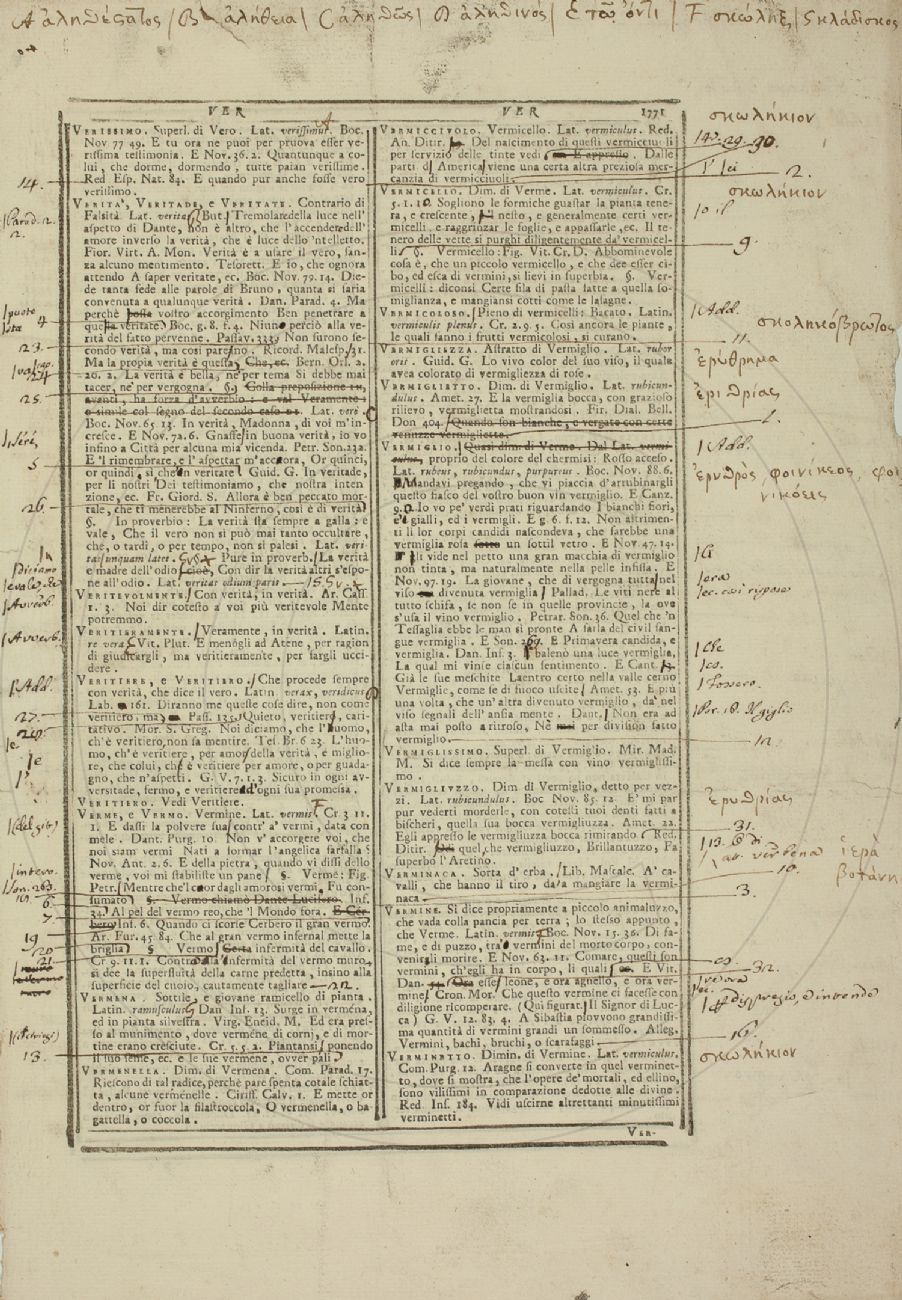 A ἀληθέςατος / B ἀλήθεια / C ἀληθῶς / D ἀληθινος / E τῷ ὄντι / F σκώληξ / G κλάδισκος
VER
VER 1771
VERISSIMO. Superl. di Vero. Lat. verissimus. Boc.
Nov 77 49. E tu ora ne puoi per pruova esser ve-
rissima testimonia. E Nov. 36. 2. Quantunque a co-
lui, che dorme, dormendo, tutte paian verissime.
Red Esp. Nat. 84. E quando pur anche fosse vero
verissimo.
VERITA', VERITADE, e VERITATE. Contrario di
Falsità. Lat. veritas But. Tremolare della luce nell'
aspetto di Dante, non è altro, che l'accender dell'
amore inverso la verità, che è luce dello 'ntelletto.
Fior. Virt. A. Mon. Verità è a usare il vero, san-
za alcuno mentimento. Tesorett. E io, che ognora
attendo A saper veritate, ec. Boc. Nov. 79. 14. Die-
de tanta fede alle parole di Bruno, quanta si saria
convenuta a qualunque verità. Dan. Parad. 4. Ma
perchè possa vostro accorgimento Ben penetrare a
questa veritate Boc. g. 8. f. 4. Niuno perciò alla ve-
rità del fatto pervenne. Passav. 333. Non furono se-
condo verità, ma così pareano. Ricord. Malesp. 31.
Ma la propia verità è questa, Che, ec. Bern. Orl. 2.
20. 2. La verità è bella, nè per tema Si debbe mai
tacer, nè per vergogna. §. Colla preposizione in,
avanti, ha forza d'avverbio: e val Veramente:
o simile col segno del secondo caso di. Lat. verè.
Boc. Nov. 65. 13. In verità, Madonna, di voi m'in-
cresce. E Nov. 72. 6. Gnaffe, in buona verità, io vo
infino a Città per alcuna mia vicenda. Petr. Son. 232.
E 'l rimembrare, e l'aspettar m'accora, Or quinci,
or quindi, sì che 'n veritate Guid. G. In veritade,
per li nostri Dei testimoniamo, che nostra inten
zione, ec. Fr. Giord. S. Allora è ben peccato mor-
tale, che ti menerebbe al Ninferno, così è di verità
§. In proverbio: La verità sta sempre a galla: e
vale, Che il vero non si può mai tanto occultare,
che, o tardi, o per tempo, non si palesi. Lat. veri-
tas nunquam latet. Pure in proverb. La verità
è madre dell'odio cioè, Con dir la verità altri s'espo-
ne all'odio. Lat. veritas odium parit
VERITEVOLMENTE. Con verità, in verità. Ar. Cass
1. 3. Noi dir cotesto a voi più veritevole Mente
potremmo.
VERITIERAMENTE. Veramente, in verità. Latin.
re vera. Vit. Plut. E menogli ad Atene, per ragion
di giudicargli, ma veritieramente, per fargli ucci-
dere.
VERITIERE, e VERITIERO. Che procede sempre
con verità, che dice il vero. Latin. verax, veridicus
Lab. 161. Diranno me queste cose dire, non come
veritiero, ma Pass. 135. Quieto, veritiero, cari-
tativo. Mor. S. Greg. Noi diciamo, che l'huomo,
ch'è veritiero, non sa mentire. Tes. Br. 6 23. L'huo-
mo, ch'è veritiere, per amor della verità, è miglio-
re, che colui, che è veritiere per amore, o per guada-
gno, che n'aspetti. G. V. 7. 1. 3. Sicuro in ogni av-
versitade, fermo, e veritiere d'ogni sua promessa.
VERITIERO. Vedi Veritiere.
VERME, e VERMO. Vermine. Lat. vermis Cr 3 11.
1. E dassi la polvere sua contr' a' vermi, data con
mele. Dant. Purg. 10. Non v'accorgete voi, che
noi siam vermi Nati a formar l'angelica farfalla
Nov. Ant. 2. 6. E della pietra, quando vi dissi dello
verme, voi mi stabiliste un pane §. Verme: Fig.
Petr. Mentre che'l cuor dagli amorosi vermi, Fu con-
sumato §. Vermo chiamò Dante Lucifero. Inf.
34. Al pel del vermo reo, che 'l Mondo fora. E Cer-
bero Inf. 6. Quando ci scorse Cerbero il gran vermo
Ar. Fur. 45 84. Che al gran vermo infernal mette la
briglia §. Vermo Certa infermità del cavallo.
Cr 9. 11. 1. Contro alla infermità del vermo muro
si dee la superfluità della carne predetta, insino alla
superficie del cuoio, cautamente tagliare 22.
VERMENA. Sottile, e giovane ramicello di pianta.
Latin. ramusculus Dan Inf. 13. Surge in vermena,
ed in pianta silvestra. Virg. Eneid. M. Ed era pres-
so al munimento, dove vermene di cornj, e di mor-
tine erano cresciute. Cr. 5. 5. 2. Piantansi ponendo
il suo seme, ec. e le sue vermene, ovver pali
VERMENELLA. Dim. di Vermena. Com. Parad. 17.
Riescono di tal radice, perchè pare spenta cotale schiat-
ta, alcune vermenelle. Ciriff. Calv. 1. E mette or
dentro, or fuor la filastroccola, O vermenella, o ba-
gattella, o coccola.
VERMICCIVOLO. Vermicello. Lat. vermiculus. Red.
An. Ditir. Del nascimento di questi vermicciuoli
per servizio delle tinte vedi E appresso. Dalle
parti d'America viene una certa altra preziosa mer-
canzia di vermicciuoli
VERMICELLO. Dim. di Verme. Lat. vermiculus. Cr.
5. 1. 10. Sogliono le formiche guastar la pianta tene-
ra, e crescente, nesto, e generalmente certi ver-
micelli, e raggrinzar le foglie, e appassarle, ec. Il te-
nero delle vette si purghi diligentemente da' vermicel-
li §. Vermicello: Fig. Vit. Cr. D. Abbominevole
cosa è, che un piccolo vermicello, e che dee esser ci-
bo, ed esca di vermini, si lievi in superbia. §. Ver-
micelli: diconsi Certe fila di pasta fatte a quella so-
miglianza, e mangiansi cotti come le lasagne.
VERMICOLOSO. Pieno di vermicelli: Bacato. Latin.
vermiculis plenus. Cr. 2. 9. 5. Così ancora le piante,
le quali fanno i frutti vermicolosi, si curano.
VERMIGLIEZZA. Astratto di Vermiglio. Lat. rubor
oris. Guid. G. Lo vivo color del suo viso, il quale
avea colorato di vermigliezza di rose.
VERMIGLIETTO. Dim. di Vermiglio. Lat. rubicun-
dulus. Amet. 27. E la vermiglia bocca, con grazioso
rilievo, vermiglietta mostrandosi. Fir. Dial. Bell.
Don 404. Quando son bianche, o vergate con certe
venuzze vermigliette.
VERMIGLIO. Quasi dim. di Vermo. Dal Lat. vermi-
culus, proprio del colore del chermisì: Rosso acceso.
Lat. rubeus, rubicundus, purpureus. Boc. Nov. 88. 6.
Mandavi pregando, che vi piaccia d'arrubinargli
questo fiasco del vostro buon vin vermiglio. E Canz.
9. Io vo pe' verdi prati riguardando I bianchi fiori,
e i gialli, ed i vermigli. E g. 6. f. 12. Non altrimen-
ti li lor corpi candidi nascondeva, che farebbe una
vermiglia rosa sotto un sottil vetro. E Nov 47. 14.
vide nel petto una gran macchia di vermiglio
non tinta, ma naturalmente nella pelle infissa. E
Nov. 97. 19. La giovane, che di vergogna tutta nel
viso divenuta vermiglia Pallad. Le viti nere al
tutto schifa, se non se in quelle provincie, là ove
s'usa il vino vermiglio. Petrar. Son. 36. Quel che 'n
Tessaglia ebbe le man sì pronte A farla del civil san-
gue vermiglia. E Son. 269. E Primavera candida, e
vermiglia. Dan. Inf. 3. balenò una luce vermiglia,
La qual mi vinse ciascun sentimento. E Cant.
Già le sue meschite Laentro certo nella valle cerno
Vermiglie, come se di fuoco uscite Amet. 53. E più
una volta, che un'altra divenuto vermiglio, dà nel
viso segnali dell'ansia mente. Dant. Non era ad
asta mai posto a ritroso, Nè per division fatto
vermiglio 12.
VERMIGLISSIMO. Superl. di Vermiglio. Mir. Mad.
M. Si dice sempre la messa con vino vermiglissi-
mo.
VERMIGLIUZZO. Dim di Vermiglio, detto per vez-
zi. Lat. rubicundulus. Boc Nov. 85. 12. E' mi par
pur vederti morderle, con cotesti tuoi denti fatti a
bischeri, quella sua bocca vermigliuzza. Amet. 22
Egli appresso le vermigliuzza bocca rimirando Red.
Ditir. quel, che vermigliuzzo, Brillantuzzo, Fa
superbo l'Aretino.
VERMINACA. Sorta d'erba. Lib. Mascalc. A' ca-
valli, che hanno il tiro, da' a mangiare la vermi-
naca
VERMINE. Si dice propriamente a piccolo animaluzzo,
che vada colla pancia per terra; lo stesso appunto,
che Verme. Latin. vermis Boc. Nov. 15. 36. Di fa-
me, e di puzzo, tra' vermini del morto corpo, con-
venirgli morire. E Nov. 63. 11. Comare, questi son
vermini, ch'egli ha in corpo, li quali ec. E Vit.
Dan. Ora esse leone, e ora agnello, e ora ver-
mine Cron. Mor. Che questo vermine ci facesse con
diligione ricomperare. (Qui figurat: Il Signor di Luc-
ca) G. V. 12. 83. 4. A Sibastia piovvono grandissi-
ma quantità di vermini grandi un sommesso. Alleg.
Vermini, bachi, bruchi, o scarafaggi
VERMINETTO. Dimin. di Vermine. Lat. vermiculus.
Com. Purg. 12. Aragne si converte in quel verminet-
to, dove si mostra, che l'opere de' mortali, ed ellino,
sono vilissimi in comparazione dedotte alle divine.
Red. Ins. 184. Vidi uscirne altrettanti minutissimi
verminetti.
VER-
14.
Parad. 2.
2.
4
23.
25.
5
26.
Diciamo
Avverb.
Avverb.
Add.
27.
6.
7
19
20
21.
13.
σκωλήκιον
2.
σκωλήκιον
9.
Add.
σκοληκόβρωτος
11.
ἐρύθημα
ἐρυθρίας
1.
Add.
ἐρυθρὸς, φοινίκεος, φοι
νικόεις
era
ec. così rispose
Tossero.
12.
ἐρυθρίας
31.
verbena ἱερὰ
βοτάνη
10.
3.
32.
16.
σκωλήκιον